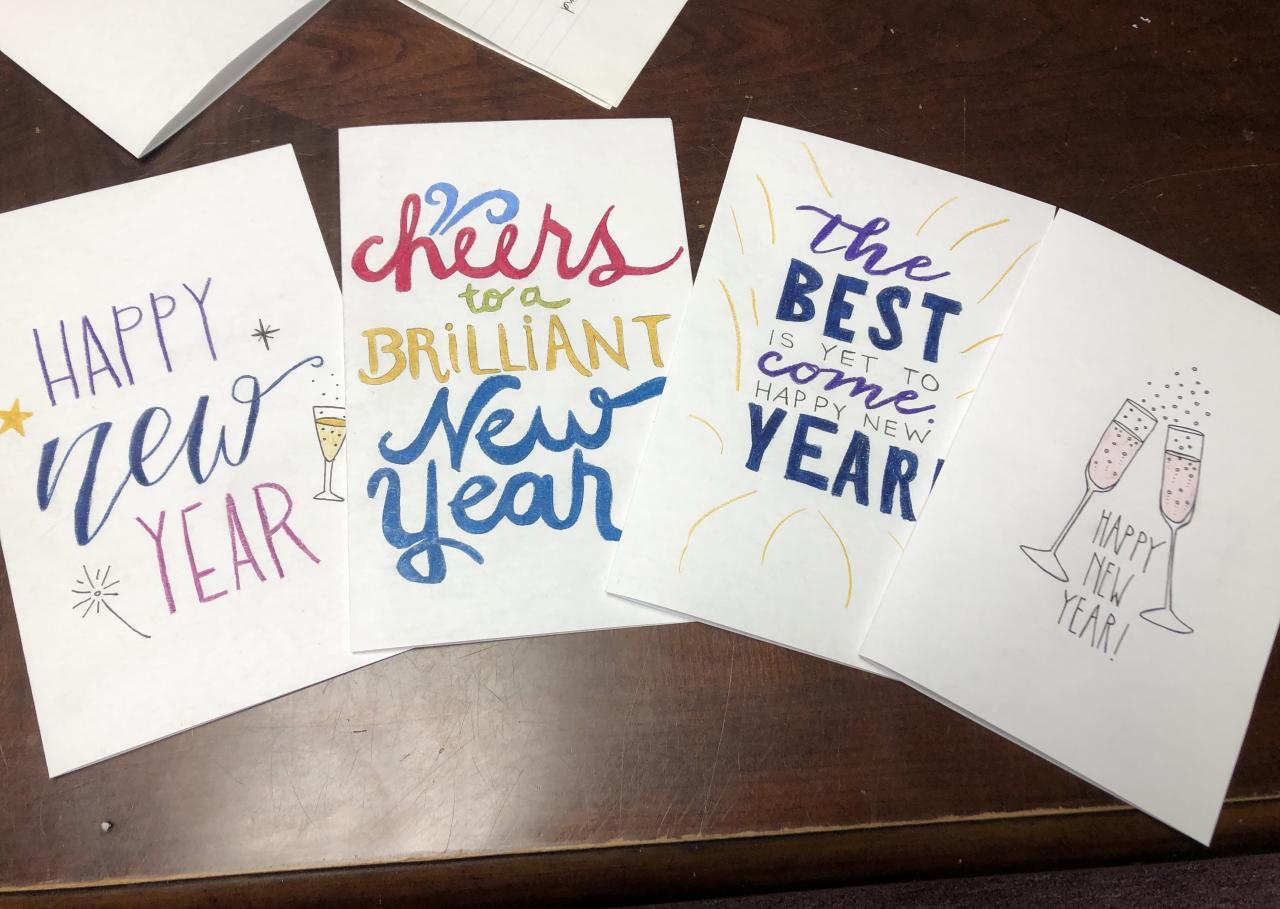 HAPPY
new
YEAR
cheers
to a
BRiLLiANT
New
Year
the
BEST
IS YET TO
come
HAPPY NEW
YEAR!
HAPPY
NEW
YEAR!